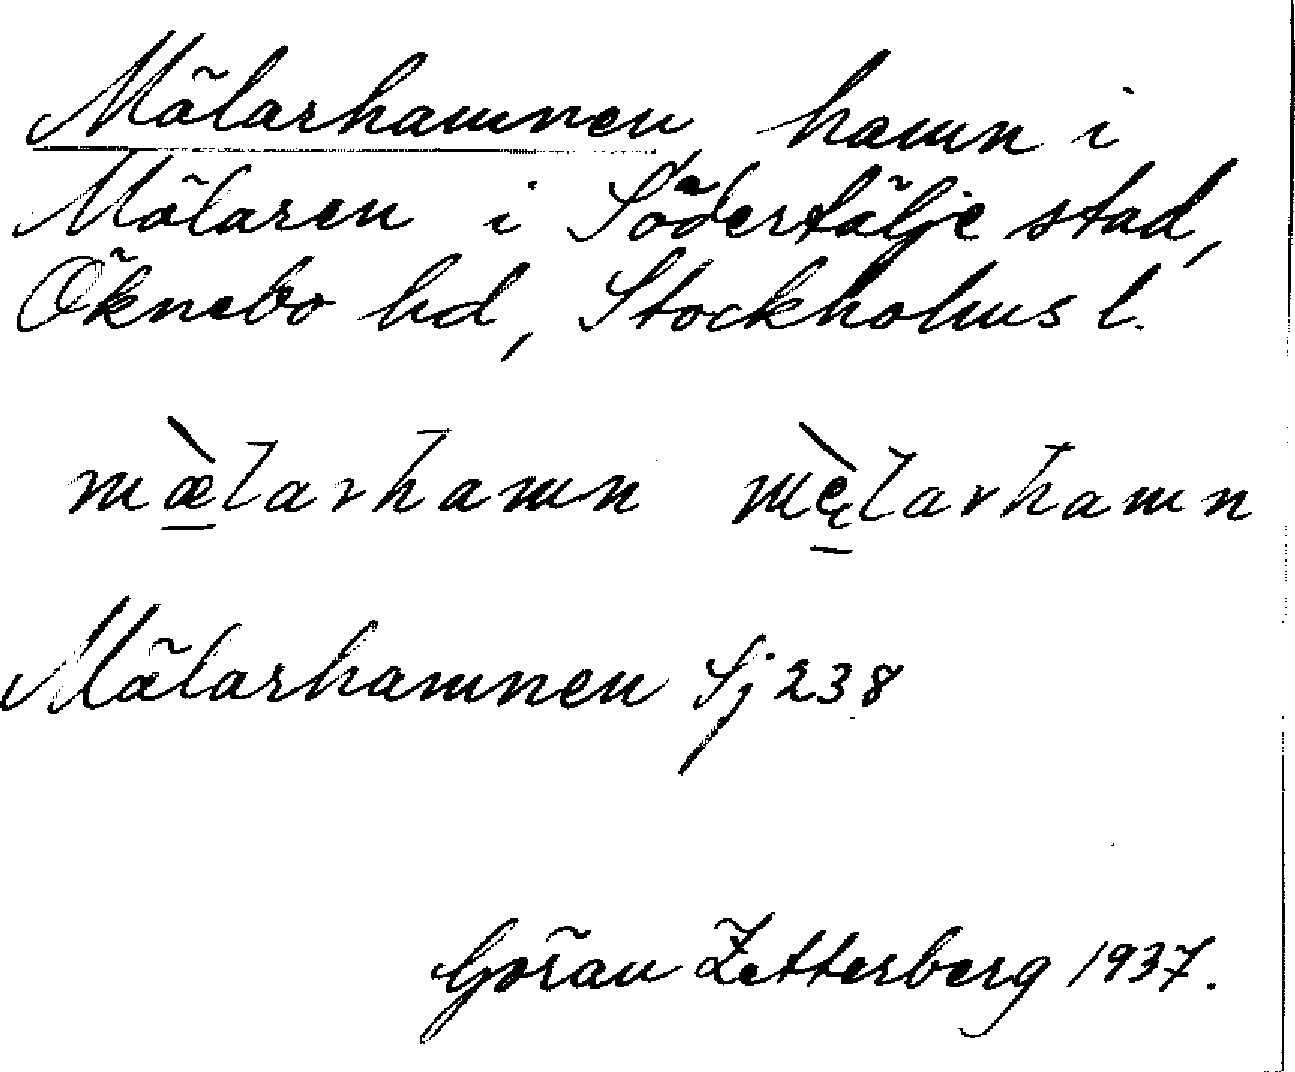 Mälarhamnen, hamn i
Mälaren i Södertälje stad,
Öknebo hd, Stockholms l.
mæ̀larhamn mę̀larhamn
Mälarhamnen Sj 238
Göran Zetterberg 1937.